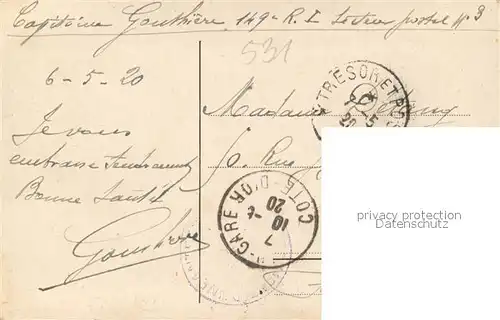 Capitaine Gouthière, 149e R. I. Secteur postal No 3
531
6 - 5 - 20
Je vous
embrasse tendrement
Bonne Santé
Gouthière
Madame
TRESOR ET POSTES
5
20
Rue
GARE
COTE-D'OR
10
7
20
privacy protection
Datenschutz